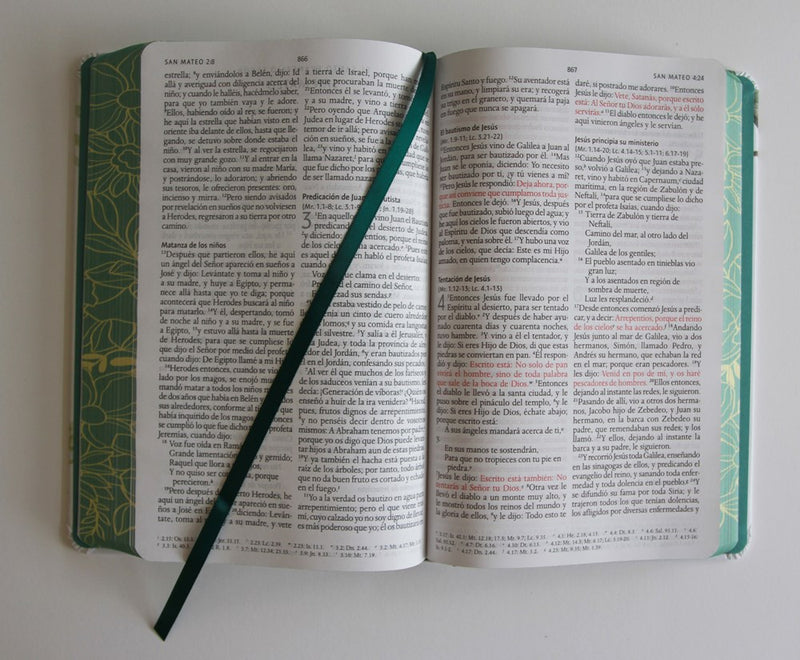 SAN MATEO 2:8
866
estrella; ⁸y enviándolos a Belén, dijo: Id
allá y averiguad con diligencia acerca del
niño; y cuando le halléis, hacédmelo saber,
para que yo también vaya y le adore.
⁹Ellos, habiendo oído al rey, se fueron; y
he aquí la estrella que habían visto en el
oriente iba delante de ellos, hasta que lle-
gando, se detuvo sobre donde estaba el
niño. ¹⁰Y al ver la estrella, se regocijaron
con muy grande gozo. ¹¹Y al entrar en la
casa, vieron al niño con su madre María,
y postrándose, lo adoraron; y abriendo
sus tesoros, le ofrecieron presentes: oro,
incienso y mirra. ¹²Pero siendo avisados
por revelación en sueños que no volviesen
a Herodes, regresaron a su tierra por otro
camino.
Matanza de los niños
¹³Después que partieron ellos, he aquí
un ángel del Señor apareció en sueños a
José y dijo: Levántate y toma al niño y
a su madre, y huye a Egipto, y perma-
nece allá hasta que yo te diga; porque
acontecerá que Herodes buscará al niño
para matarlo. ¹⁴Y él, despertando, tomó
de noche al niño y a su madre, y se fue
a Egipto, ¹⁵y estuvo allá hasta la muerte
de Herodes; para que se cumpliese lo
que dijo el Señor por medio del profeta,
cuando dijo: De Egipto llamé a mi Hijo.
¹⁶Herodes entonces, cuando se vio
lado por los magos, se enojó mucho
mandó matar a todos los niños menores
de dos años que había en Belén
sus alrededores, conforme al tiempo
había inquirido de los magos.
se cumplió lo que fue dicho por el
Jeremías, cuando dijo:
Voz fue oída en Ramá,
Grande lamentación, y gemido;
Raquel que llora a
Y no quiso ser consolada, porque
perecieron.
¹⁹Pero después de muerto Herodes, he
un ángel del Señor apareció en sue-
ños a José en Egipto, diciendo: Leván-
tate, toma al niño y a su madre, y vete
a tierra de Israel, porque han
los que procuraban la muerte
²¹Entonces él se levantó, y tomó
y a su madre, y vino a tierra
²²Pero oyendo que Arquelao
Judea en lugar de Herodes su
temor de ir allá; pero avisado
ción en sueños, se fue a la
²³y vino y habitó en
llama Nazaret, para que
lo que fue dicho por los profetas, que
de ser llamado nazareno.
Predicación de Juan el Bautista
(Mr. 1.1-8; Lc. 3.1-9, Jn. 1.19-28)
3 ¹En aquellos días vino Juan el Bautista
predicando en el desierto de Judea,
²y diciendo: Arrepentíos, porque el reino
de los cielos se ha acercado. ³Pues este
es aquel de quien habló el profeta Isaías,
cuando dijo:
Voz del que clama en el desierto:
Preparad el camino del Señor,
Enderezad sus sendas.
⁴Y Juan estaba vestido de pelo de camello,
y tenía un cinto de cuero alrededor
de sus lomos; y su comida era langostas
y miel silvestre. ⁵Y salía a él Jerusalén,
y toda Judea, y toda la provincia de alre-
dedor del Jordán, ⁶y eran bautizados por
él en el Jordán, confesando sus pecados.
⁷Al ver él que muchos de los fariseos y
de los saduceos venían a su bautismo, les
decía: ¡Generación de víboras! ¿Quién os
enseñó a huir de la ira venidera? ⁸Haced,
pues, frutos dignos de arrepentimiento,
⁹y no penséis decir dentro de vosotros
mismos: A Abraham tenemos por padre;
porque yo os digo que Dios puede levan-
tar hijos a Abraham aun de estas piedras.
¹⁰Y ya también el hacha está puesta a la
raíz de los árboles; por tanto, todo árbol
que no da buen fruto es cortado y echado
en el fuego.
¹¹Yo a la verdad os bautizo en agua para
arrepentimiento; pero el que viene tras
mí, cuyo calzado yo no soy digno de llevar,
es más poderoso que yo; él os bautizará en
867
SAN MATEO 4:24
Espíritu Santo y fuego. ¹²Su aventador está
en su mano, y limpiará su era; y recogerá
su trigo en el granero, y quemará la paja
en fuego que nunca se apagará.
El bautismo de Jesús
(Mr. 1.9-11; Lc. 3.21-22)
¹³Entonces Jesús vino de Galilea a Juan al
Jordán, para ser bautizado por él. ¹⁴Mas
Juan se le oponía, diciendo: Yo necesito
ser bautizado por ti, ¿y tú vienes a mí?
¹⁵Pero Jesús le respondió: Deja ahora, por-
que así conviene que cumplamos toda jus-
ticia. Entonces le dejó. ¹⁶Y Jesús, después
que fue bautizado, subió luego del agua; y
he aquí los cielos le fueron abiertos, y vio
al Espíritu de Dios que descendía como
paloma, y venía sobre él. ¹⁷Y hubo una voz
de los cielos, que decía: Este es mi Hijo
amado, en quien tengo complacencia.
Tentación de Jesús
(Mr. 1.12-13; Lc. 4.1-13)
4 ¹Entonces Jesús fue llevado por el
Espíritu al desierto, para ser tentado
por el diablo. ²Y después de haber ayu-
nado cuarenta días y cuarenta noches,
tuvo hambre. ³Y vino a él el tentador, y
le dijo: Si eres Hijo de Dios, di que estas
piedras se conviertan en pan. ⁴Él respon-
dió y dijo: Escrito está: No solo de pan
vivirá el hombre, sino de toda palabra
que sale de la boca de Dios. ⁵Entonces
el diablo le llevó a la santa ciudad, y le
puso sobre el pináculo del templo, ⁶y le
dijo: Si eres Hijo de Dios, échate abajo;
porque escrito está:
A sus ángeles mandará acerca de ti,
y,
En sus manos te sostendrán,
Para que no tropieces con tu pie en
piedra.
⁷Jesús le dijo: Escrito está también: No
tentarás al Señor tu Dios. ⁸Otra vez le
llevó el diablo a un monte muy alto, y
le mostró todos los reinos del mundo y
la gloria de ellos, ⁹y le dijo: Todo esto te
daré, si postrado me adorares. ¹⁰Entonces
Jesús le dijo: Vete, Satanás, porque escrito
está: Al Señor tu Dios adorarás, y a él solo
servirás. ¹¹El diablo entonces le dejó; y he
aquí vinieron ángeles y le servían.
Jesús principia su ministerio
(Mr. 1.14-20; Lc. 4.14-15; 5.1-11; 6.17-19)
¹²Cuando Jesús oyó que Juan estaba pre-
so, volvió a Galilea; ¹³y dejando a Naza-
ret, vino y habitó en Capernaum, ciudad
marítima, en la región de Zabulón y de
Neftalí, ¹⁴para que se cumpliese lo dicho
por el profeta Isaías, cuando dijo:
¹⁵ Tierra de Zabulón y tierra de
Neftalí,
Camino del mar, al otro lado del
Jordán,
Galilea de los gentiles;
¹⁶ El pueblo asentado en tinieblas vio
gran luz;
Y a los asentados en región de
sombra de muerte,
Luz les resplandeció.
¹⁷Desde entonces comenzó Jesús a predi-
car, y a decir: Arrepentíos, porque el reino
de los cielos se ha acercado. ¹⁸Andando
Jesús junto al mar de Galilea, vio a dos
hermanos, Simón, llamado Pedro, y
Andrés su hermano, que echaban la red
en el mar; porque eran pescadores. ¹⁹Y
les dijo: Venid en pos de mí, y os haré
pescadores de hombres. ²⁰Ellos entonces,
dejando al instante las redes, le siguieron.
²¹Pasando de allí, vio a otros dos herma-
nos, Jacobo hijo de Zebedeo, y Juan su
hermano, en la barca con Zebedeo su
padre, que remendaban sus redes; y los
llamó. ²²Y ellos, dejando al instante la
barca y a su padre, le siguieron.
²³Y recorrió Jesús toda Galilea, enseñando
en las sinagogas de ellos, y predicando el
evangelio del reino, y sanando toda enfer-
medad y toda dolencia en el pueblo. ²⁴Y
se difundió su fama por toda Siria; y le
trajeron todos los que tenían dolencias,
los afligidos por diversas enfermedades y